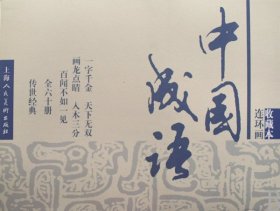 中国成语
收藏本
连环画
一字千金 天下无双
画龙点睛 入木三分
百闻不如一见
全六十册
传世经典
上海人民美术出版社